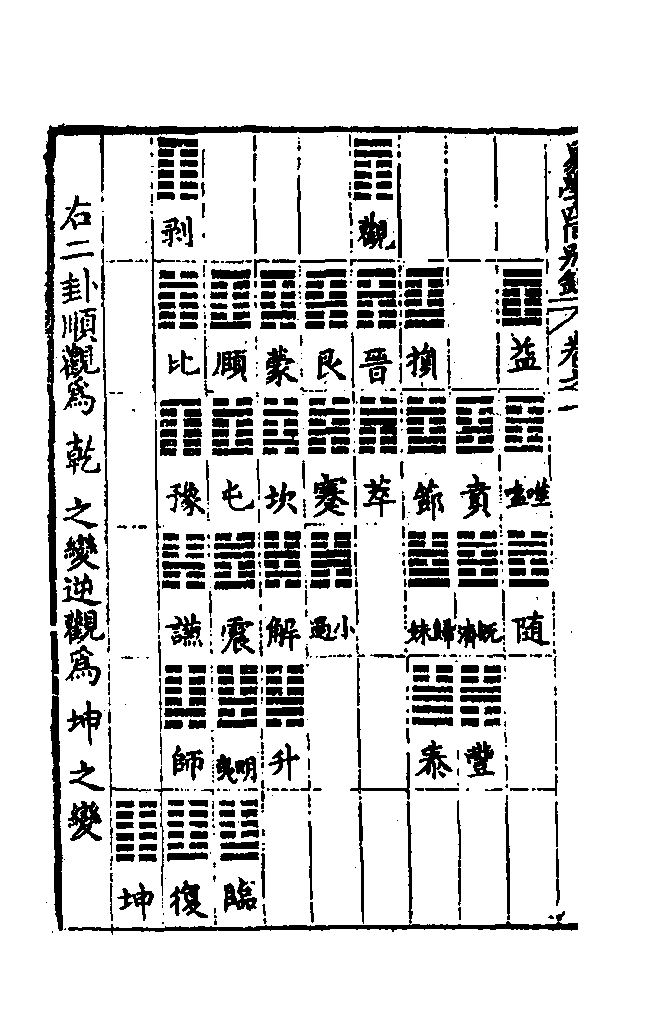 易學四同別錄 卷之一
益 噬嗑 随
賁 既濟 豐
損 節 歸妹 泰
觀 晉 萃
艮 蹇 小過
蒙 坎 解 升
頤 屯 震 明夷 臨
剥 比 豫 謙 師 復
坤
右二卦順觀爲乾之變逆觀爲坤之變